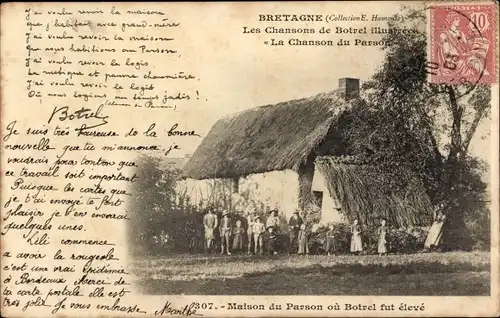 BRETAGNE (Collection E. Hamonic)
Les Chansons de Botrel illustrées
« La Chanson du Parson »
J'ai voulu revoir la maison
que j'habitais avec grand-mère
J'ai voulu revoir la maison
que nous habitions au Parson
J'ai voulu revoir la
rustique et pauvre chaumière
J'ai voulu revoir la maison
Où nous logions au temps jadis !
Botrel
(chanson du Parson)
Je suis très heureuse de la bonne
nouvelle que tu m'annonce je
voudrais pas tonton que
ce travail soit important
Puisque les cartes que
je t'ai envoyé te font
plaisir je t'en enverrai
quelques unes.
Lili commence
a avoir la rougeole
c'est une vrai épidémie
à Bordeaux Merci de
ta carte postale elle est
très jolie Je vous embrasse Marthe
10
307. - Maison du Parson où Botrel fut élevé